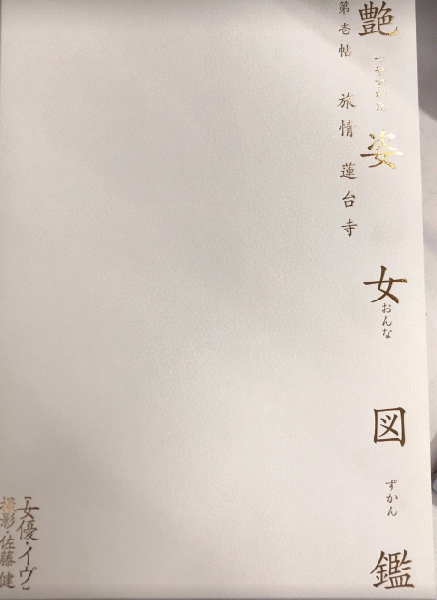 艶姿女図鑑
つやすがた
おんな
ずかん
第壱帖 旅情 蓮台寺
女優・イヴ
撮影・佐藤健